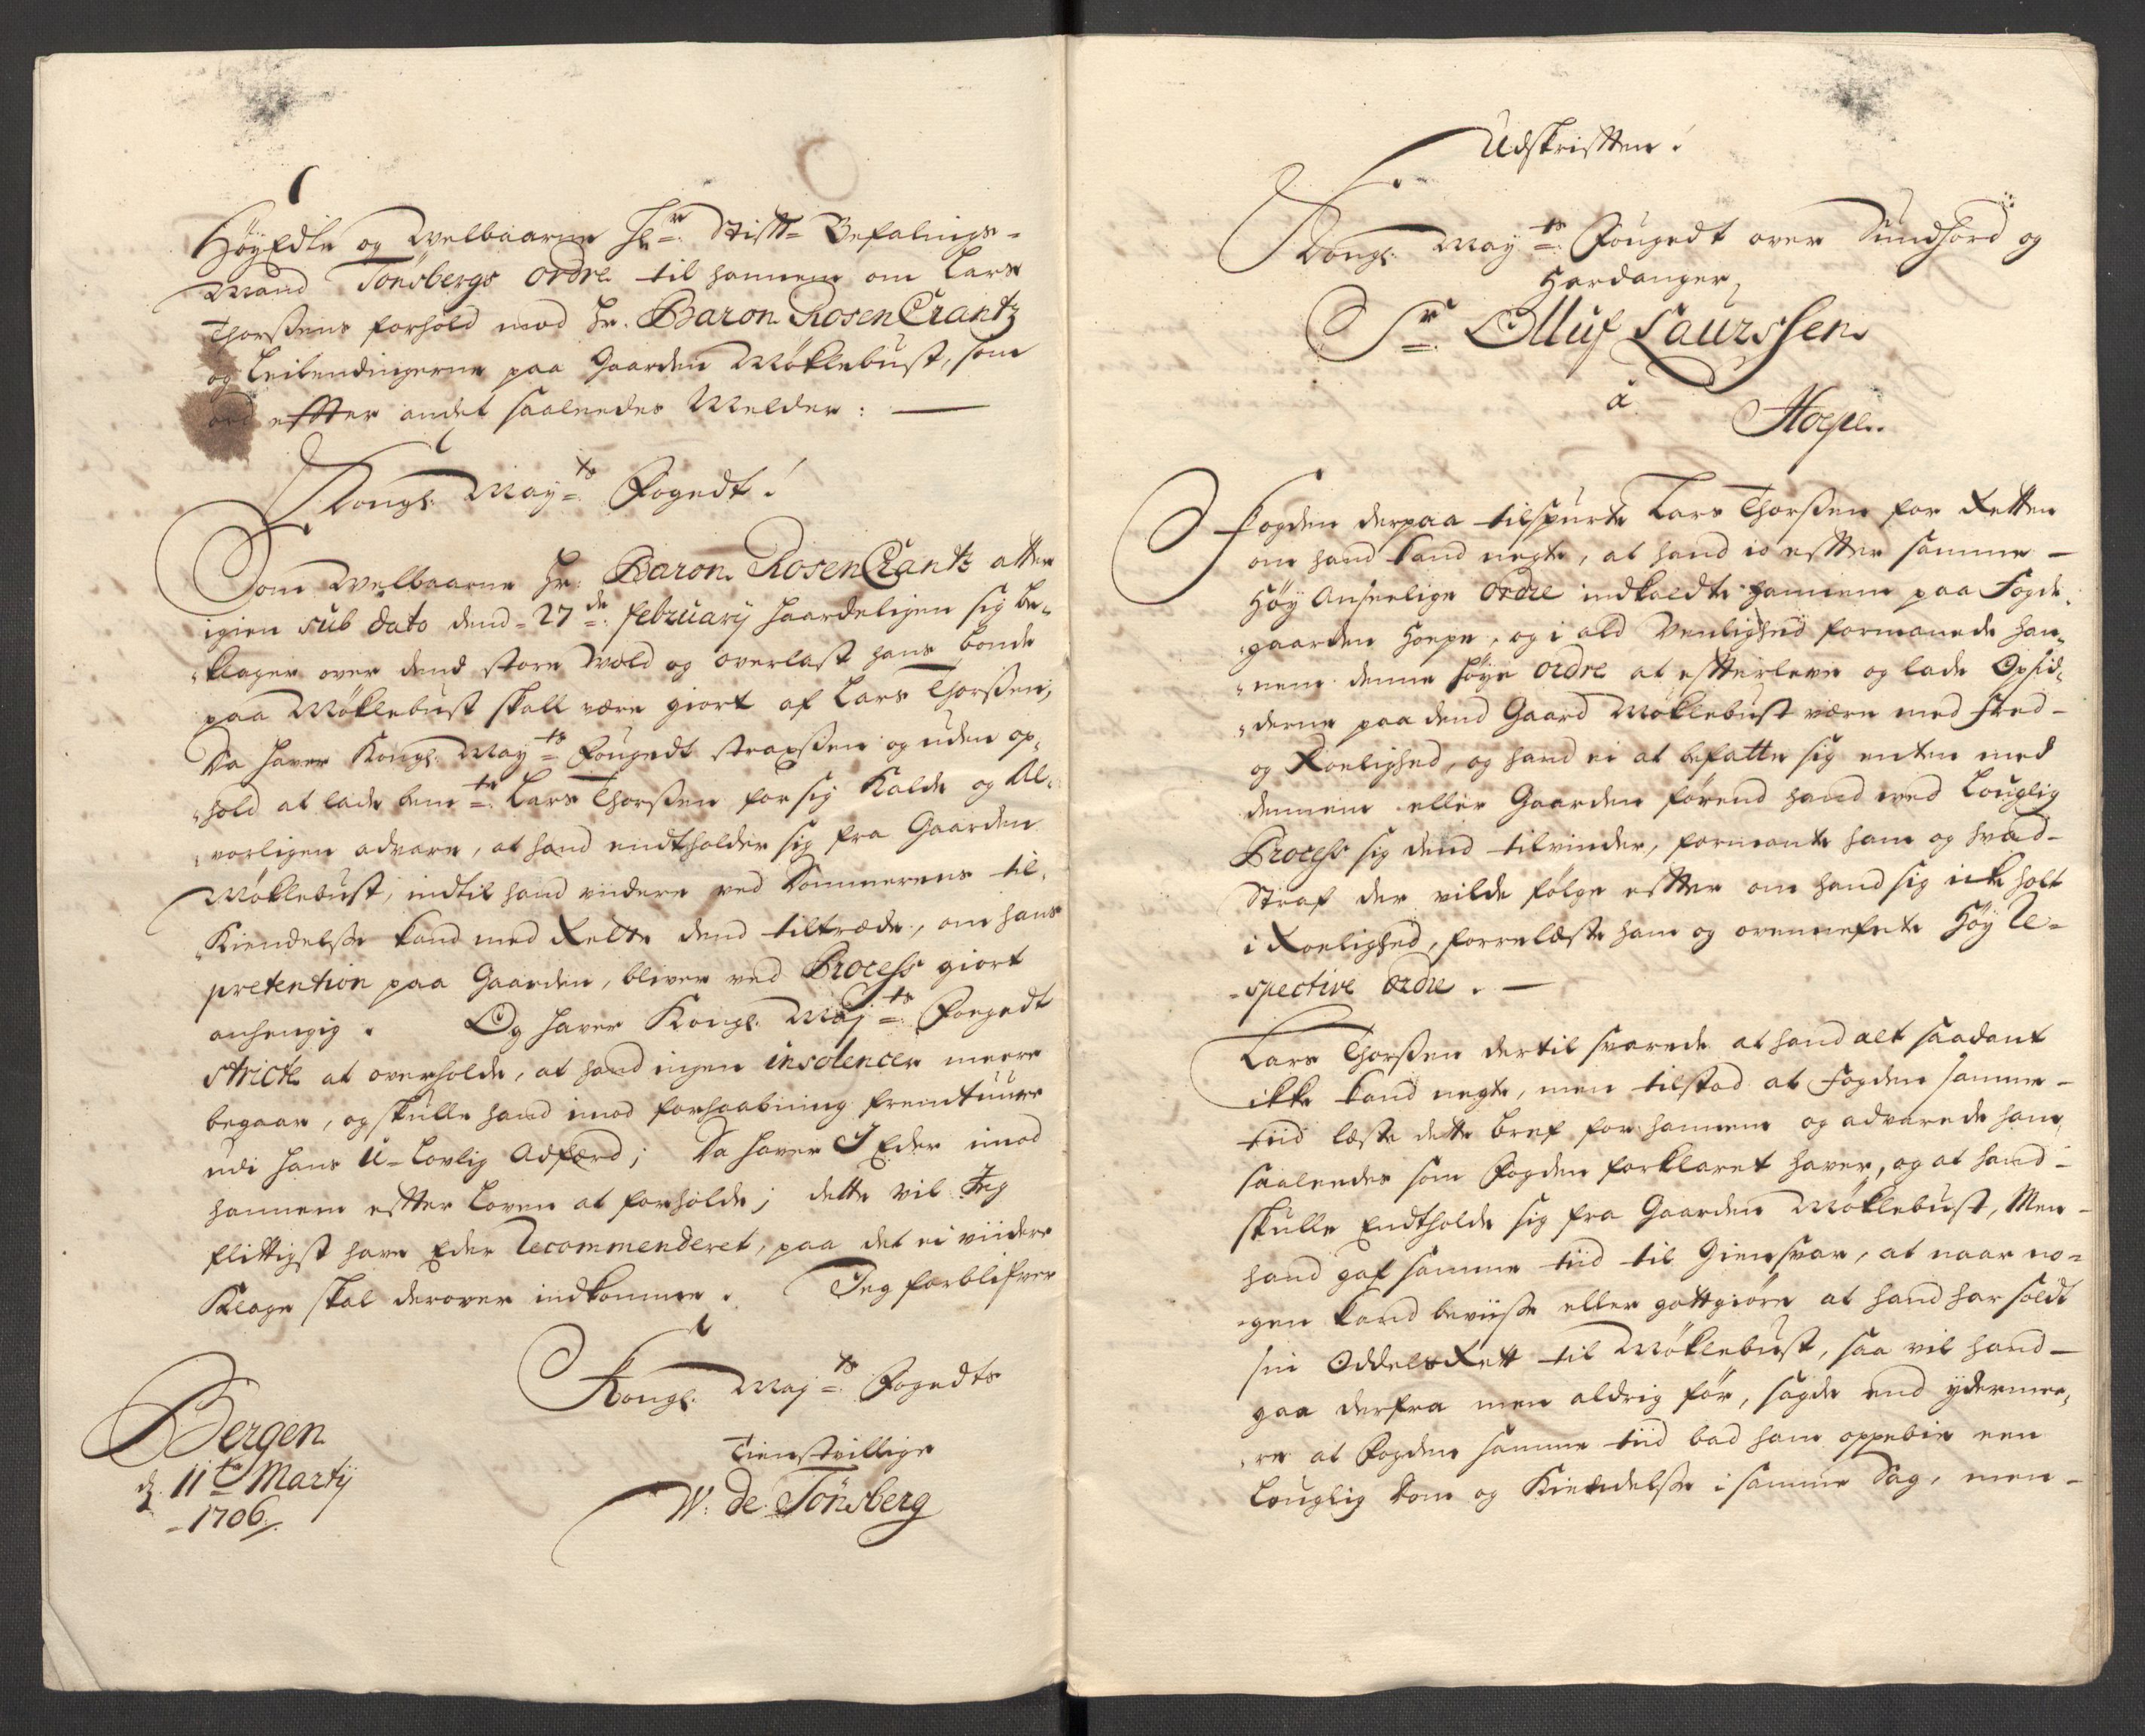 HøyEdle og Welbaarne Hr. Stift- Befalings-
Mand Tonsbergs ordre til hannem om Lars
Thorßens forhold mod Hr. Baron RosenCrantz
og Leilendingerne paa Gaarden Møklebust, som
ord effter andet saaleedes Melder: —
Kongl: May:ts Fogedt!
Som Welbaarne Hr: Baron RosenCrantz atter
igien sub dato dend 27de february haardeligen sig be-
klager over dend store Wold og overlast hans bonde
paa Møklebust skall være giort af Lars Thorßen,
Da haver Kongl: May:ts Fougedt straxßen og uden op-
hold at lade bem:te Lars Thorßen for sig Kalde og Al-
vorligen advare, at hand endtholder sig fra Gaarden
Møklebust, indtil hand viidere ved Dommerens til-
Kiendelße kand med Rette dend tiltræde, om hans
pretention paa Gaarden, bliver ved Process giort
anhengig. Og haver Kongl: Maj:ts Foegedt
stricte at overholde, at hand ingen insolencer meere
begaar, og skulle hand imod forhaabning fremtuure
udi hans U-lovlig Adfærd; Da haver I Eder imod
hannem effter Loven at forholde; dette vil Jeg
flittigst have Eder Recommenderet, paa det ei viidere
Klage skal derover indkomme. Jeg forblifver
Kongl: Maj:ts Fogedts
Tienstvillige
W: de Tonsberg
Bergen
d. 11te Martij
1706.
Udskrifften!
Kongl: May:ts Fougedt over Sundhord og
Hardanger,
Sr. Olluf Laurssen
à
Hoepe.
Fogden derpaa tilspurte Lars Thorßen for Retten
om hand kand negte, at hand io effter samme
Høy Anseelige ordre indkaldte hannem paa Fogde-
gaarden Hoepe, og i ald Venlighed formanede han-
nem denne høye ordre at effterleve og lade Opsid-
derne paa dend Gaard Møklebust være med Fred
og Roelighed, og hand ei at befatte sig enten med
dennem eller Gaarden førend hand med Louglig
Process sig dend tilvinder, formante ham og hvad
Straf der vilde følge effter om hand sig icke holt
i Roelighed, forrelæste ham og ovennefnte Høy Re-
spective ordre. —
Lars Thorßen dertil svarede at hand alt saadant
ikke kand negte, men tilstod at Fogden samme
tiid læste dette bref for hannem og advarede ham
saaleedes som Fogden forklaret haver, og at hand
skulle Endtholde sig fra Gaarden Møklebust, Men
hand gaf samme tiid til Giensvar, at naar no-
gen kand beviiße eller gottgiøre at hand har soldt
sin OddelsRett til Møklebust, saa vil hand
gaa derfra men aldrig før, sagde end ydermee-
re at Fogden samme tiid bad ham oppebie een
Louglig Dom og Kiendelße i samme Sag, men